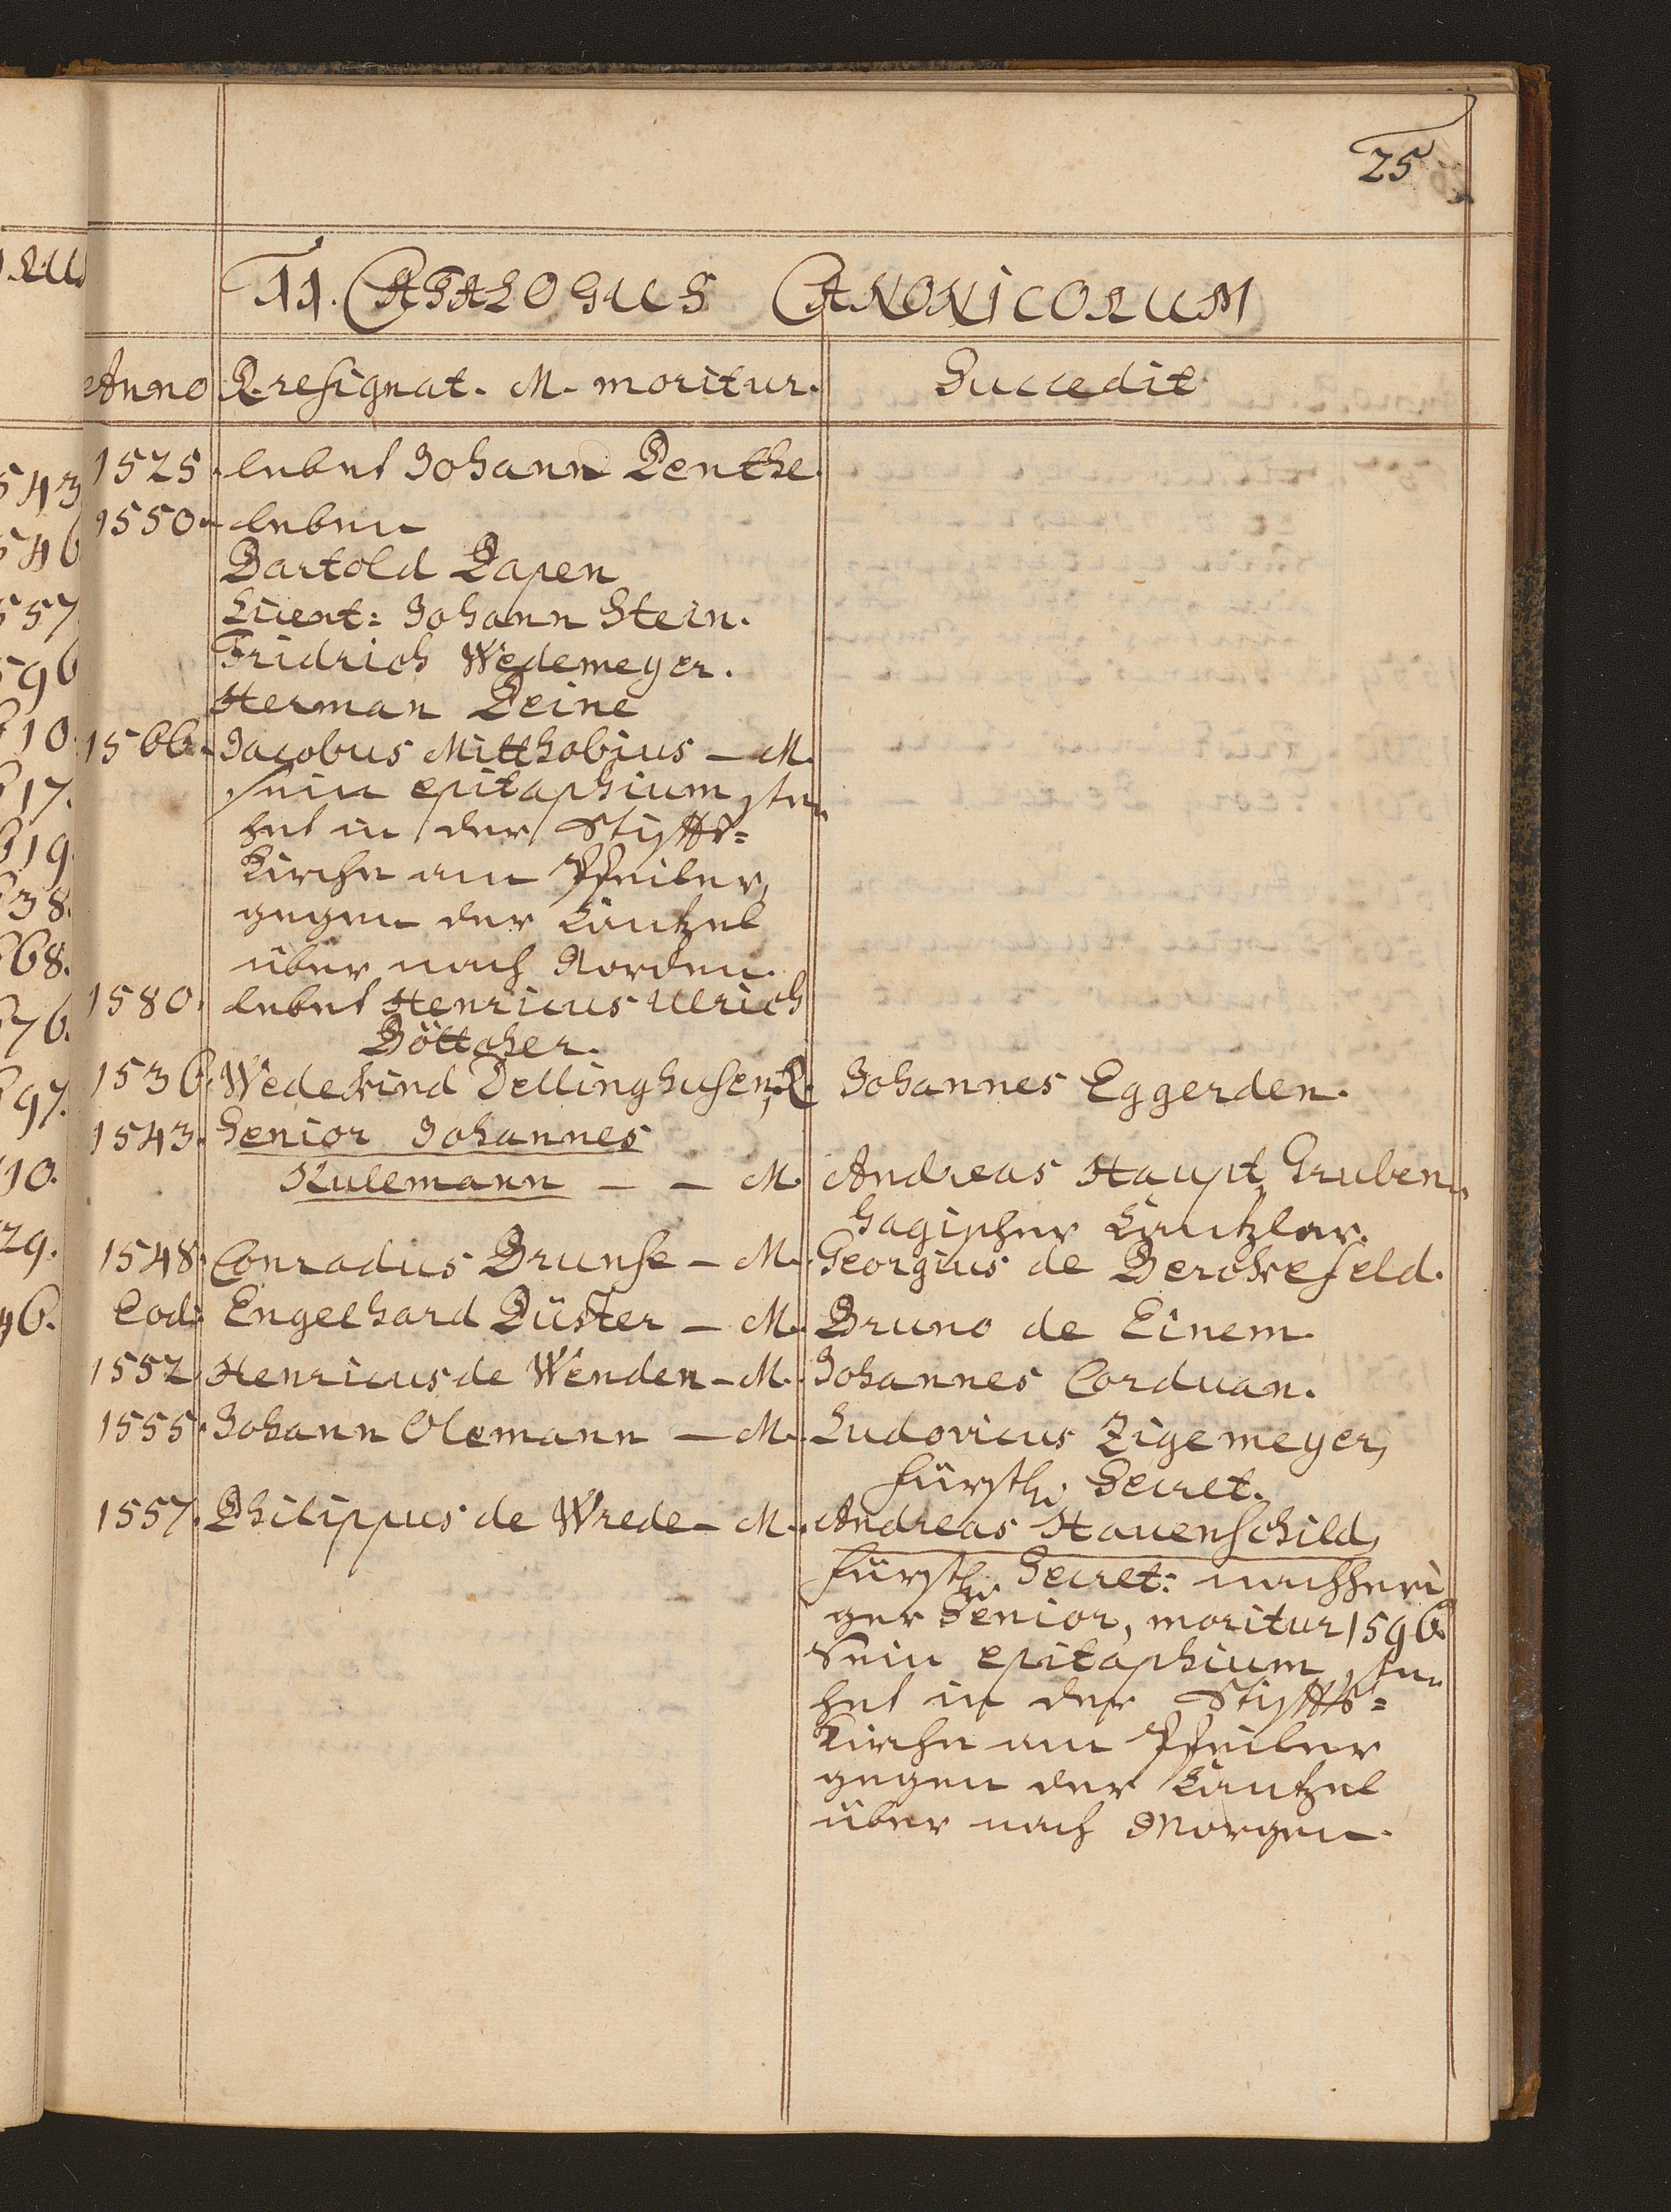 25
II. CATALOGUS CANONICORUM
Anno R. resignat. M. moritur. Succedit
1525. lebet Johann Penthe.
1550. leben
Bartold Papen
Licent: Johann Stein.
Fridrich Wedemeyer.
Herman Peine
1566. Jacobus Mitthobius – M.
sein epitaphium ste-
het in der Stiffts=
Kirche am Pfeiler,
gegen der Cantzel
über nach Norden.
1580. lebet Henricus Ulrich
Böttcher.
1536. Wedekind Dellinghusen, R. Johannes Eggerden.
1543. Senior Johannes
Kulemann – – M. Andreas Haupt, Gruben-
hagischer Cantzlar.
1548. Conradus Brunse – M. Georgius de Berckefeld.
Eod. Engelhard Düster – M. Bruno de Einem.
1552. Henricus de Wenden – M. Johannes Corduan.
1555. Johann Olemann – M. Ludovicus Zigemeyer,
fürstl. Secret.
1557. Philippus de Wrede – M. Andreas Hauenschild,
fürstl. Secret: nachheri
ger Senior, moritur 1596.
Sein epitaphium ste-
het in der Stiffts=
Kirche am Pfeiler
gegen der Cantzel
über nach Morgen.
543
546
557
596
10.
17.
19.
38.
68.
76.
97.
10.
29.
46.